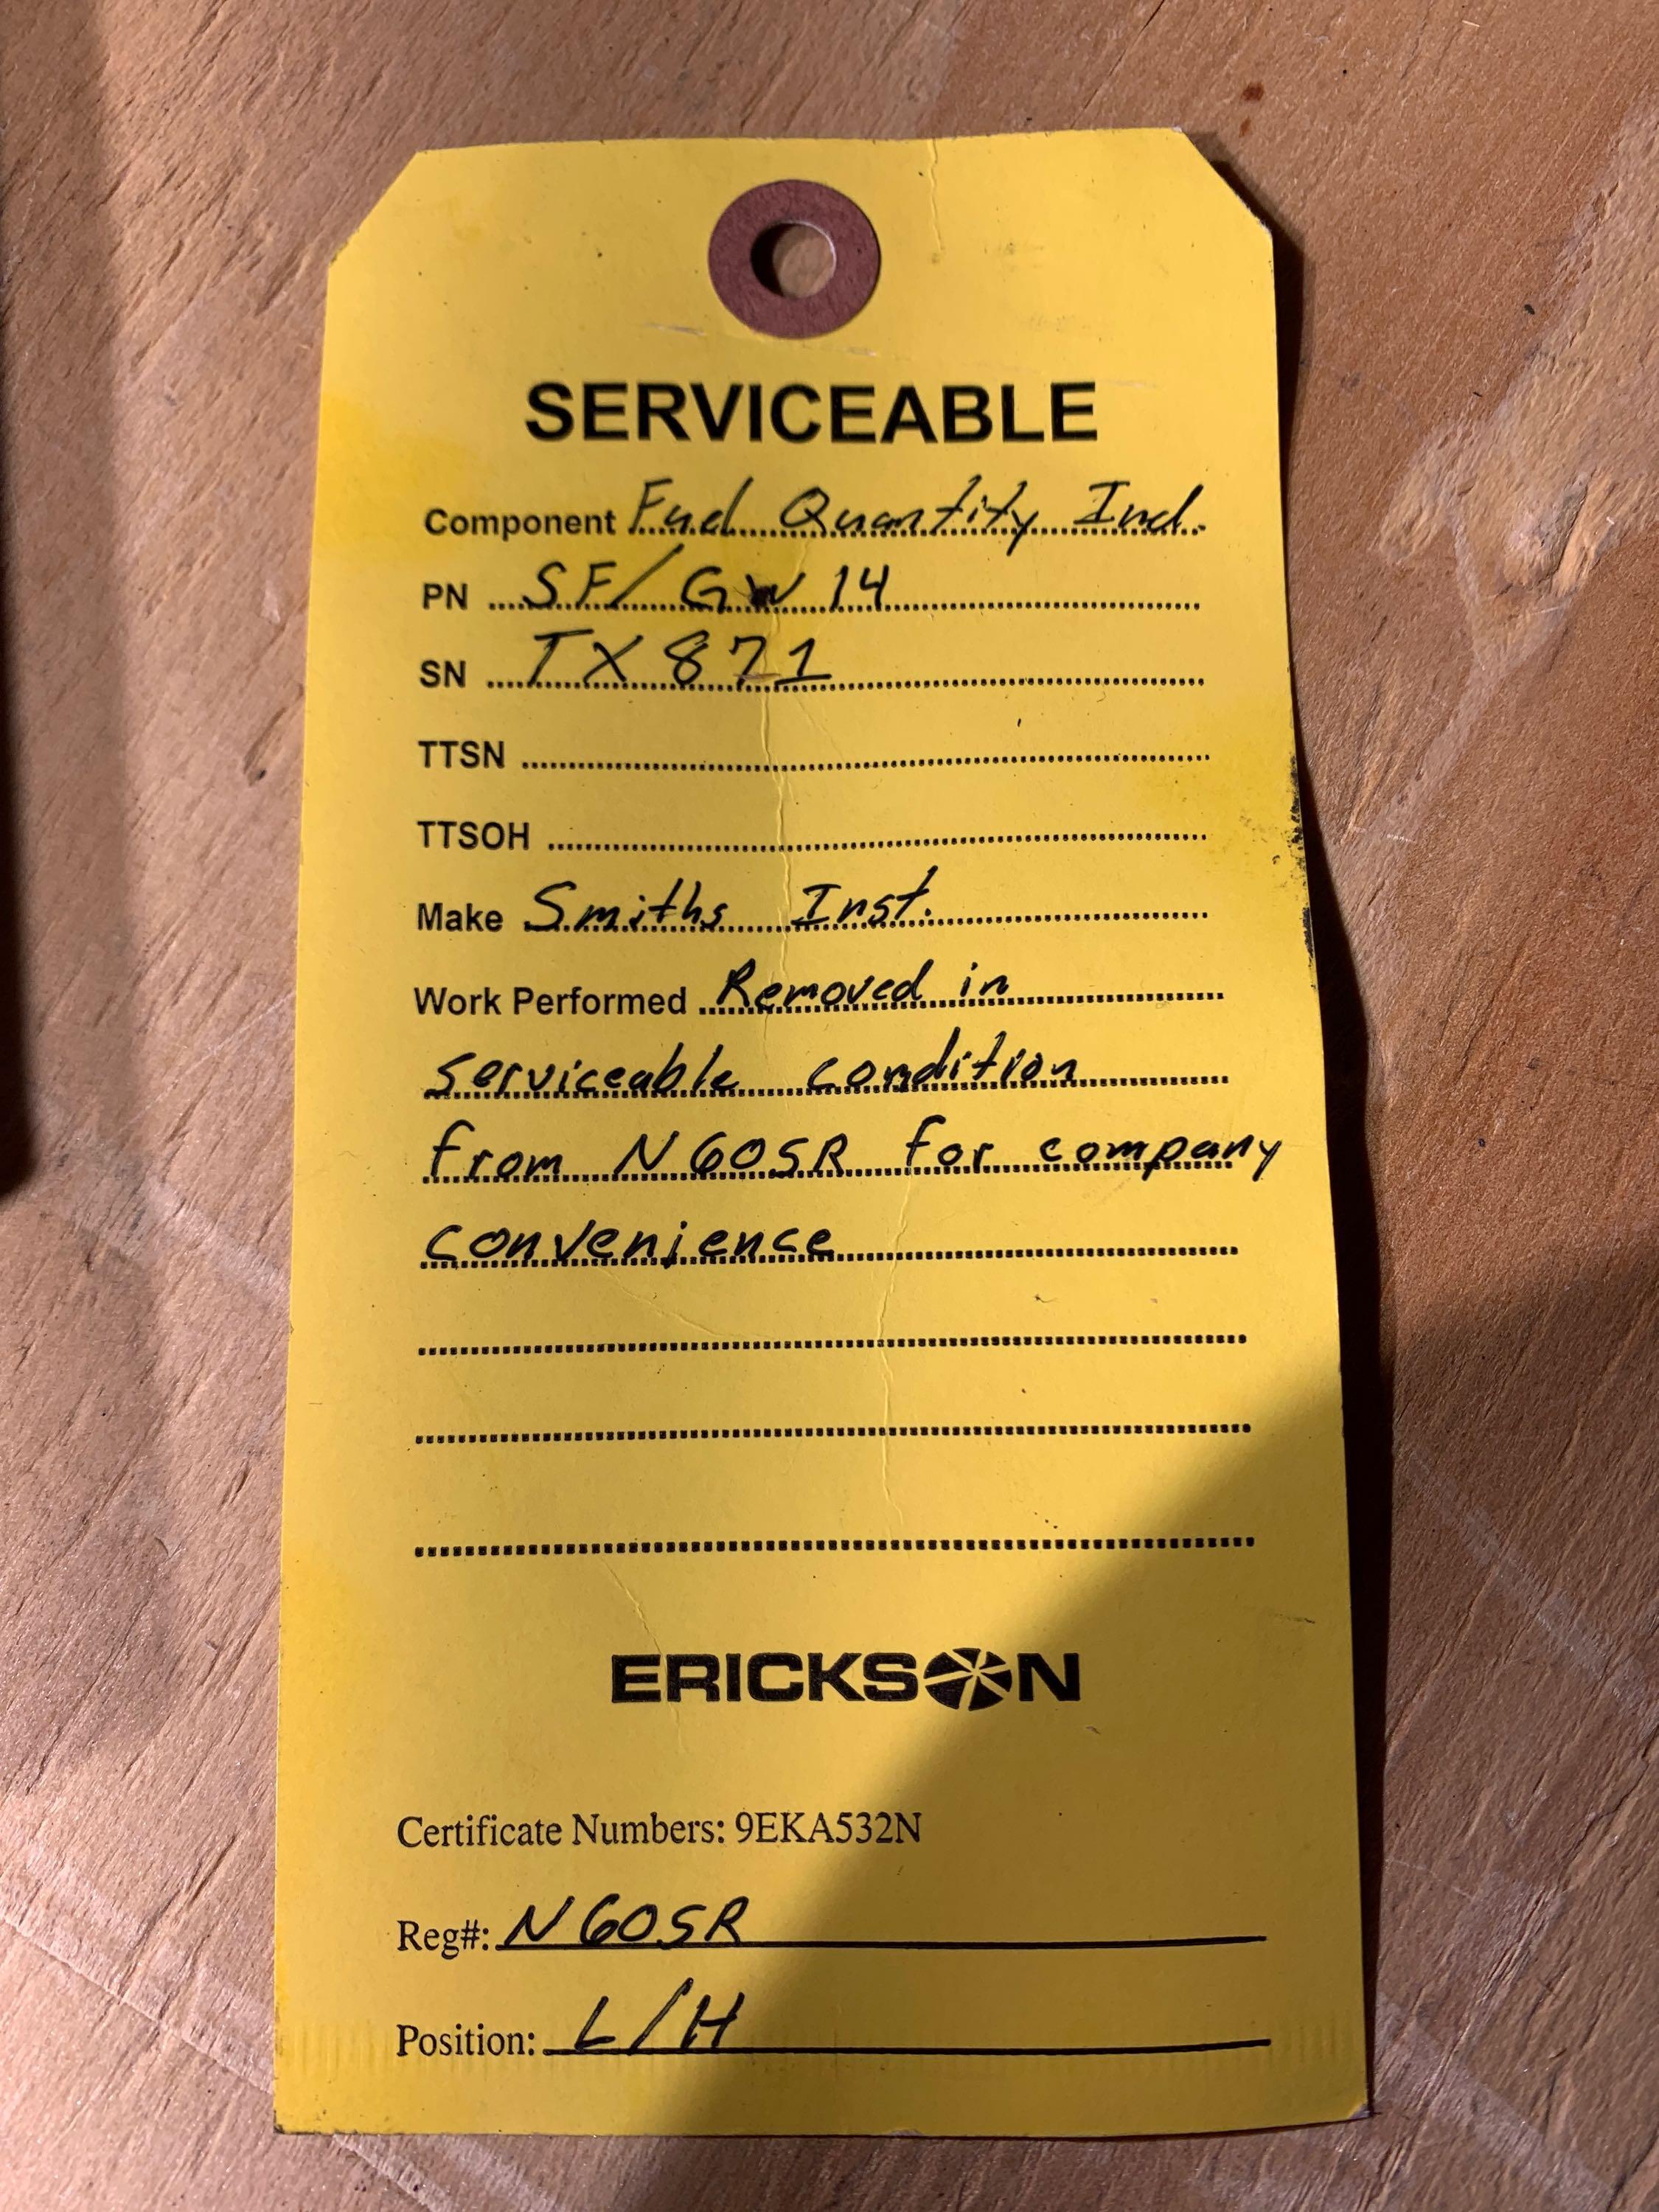 SERVICEABLE
Component Fuel Quantity Ind.
PN SF/GW14
SN TX871
TTSN
TTSOH
Make Smiths Inst.
Work Performed Removed in
serviceable condition
from N605R for company
convenience
ERICKSON
Certificate Numbers: 9EKA532N
Reg#: N605R
Position: L/H